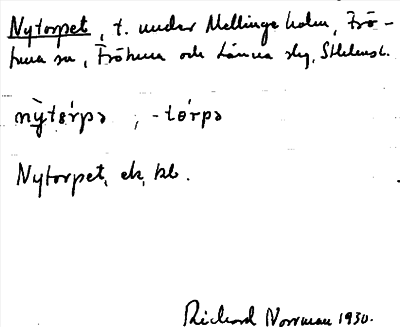 Nytorpet, t. under Mellingeholm, Frö-
tuna sn, Frötuna och Länna slg, Sthlmsl.
nỳtɵ́rpə ; -tɵ́rpə
Nytorpet, ek, kb.
Rickard Norrman 1930.